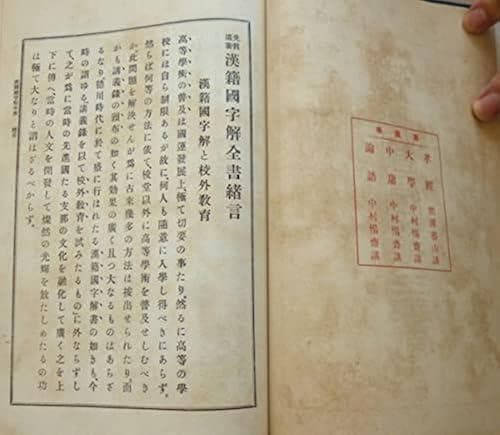 先哲遺著漢籍國字解全書緒言
漢籍國字解と校外教育
高等學術の普及は國運發展上、極て切要の事たり。然るに高等の學
校には自ら制限あるが故に、何人も隨意に入學し得べきにあらず。
然らば何等の方法に依て、校堂以外に高等學術を普及せしむべき
か。此問題を解決せんが爲に古來幾多の方法は按出せられたり。而
かも講義錄の頒布の如く其効果の廣く且つ大なるものはあらざ
るなり。德川時代に於て盛に行はれたる漢籍國字解書の如きも、今
時の謂ゆる、講義錄を以て校外敎育を試みたるものに外ならずし
て、之が爲に當時の先進國たる支那の文化を融化して廣く之を上
下に傳へ、當時の人文を開發して燦然の光輝を放たしめたるの功
は極て大なりと謂はざるべからず。
孝經 熊澤蕃山講
大學 中村惕齋講
中庸 中村惕齋講
論語 中村惕齋講